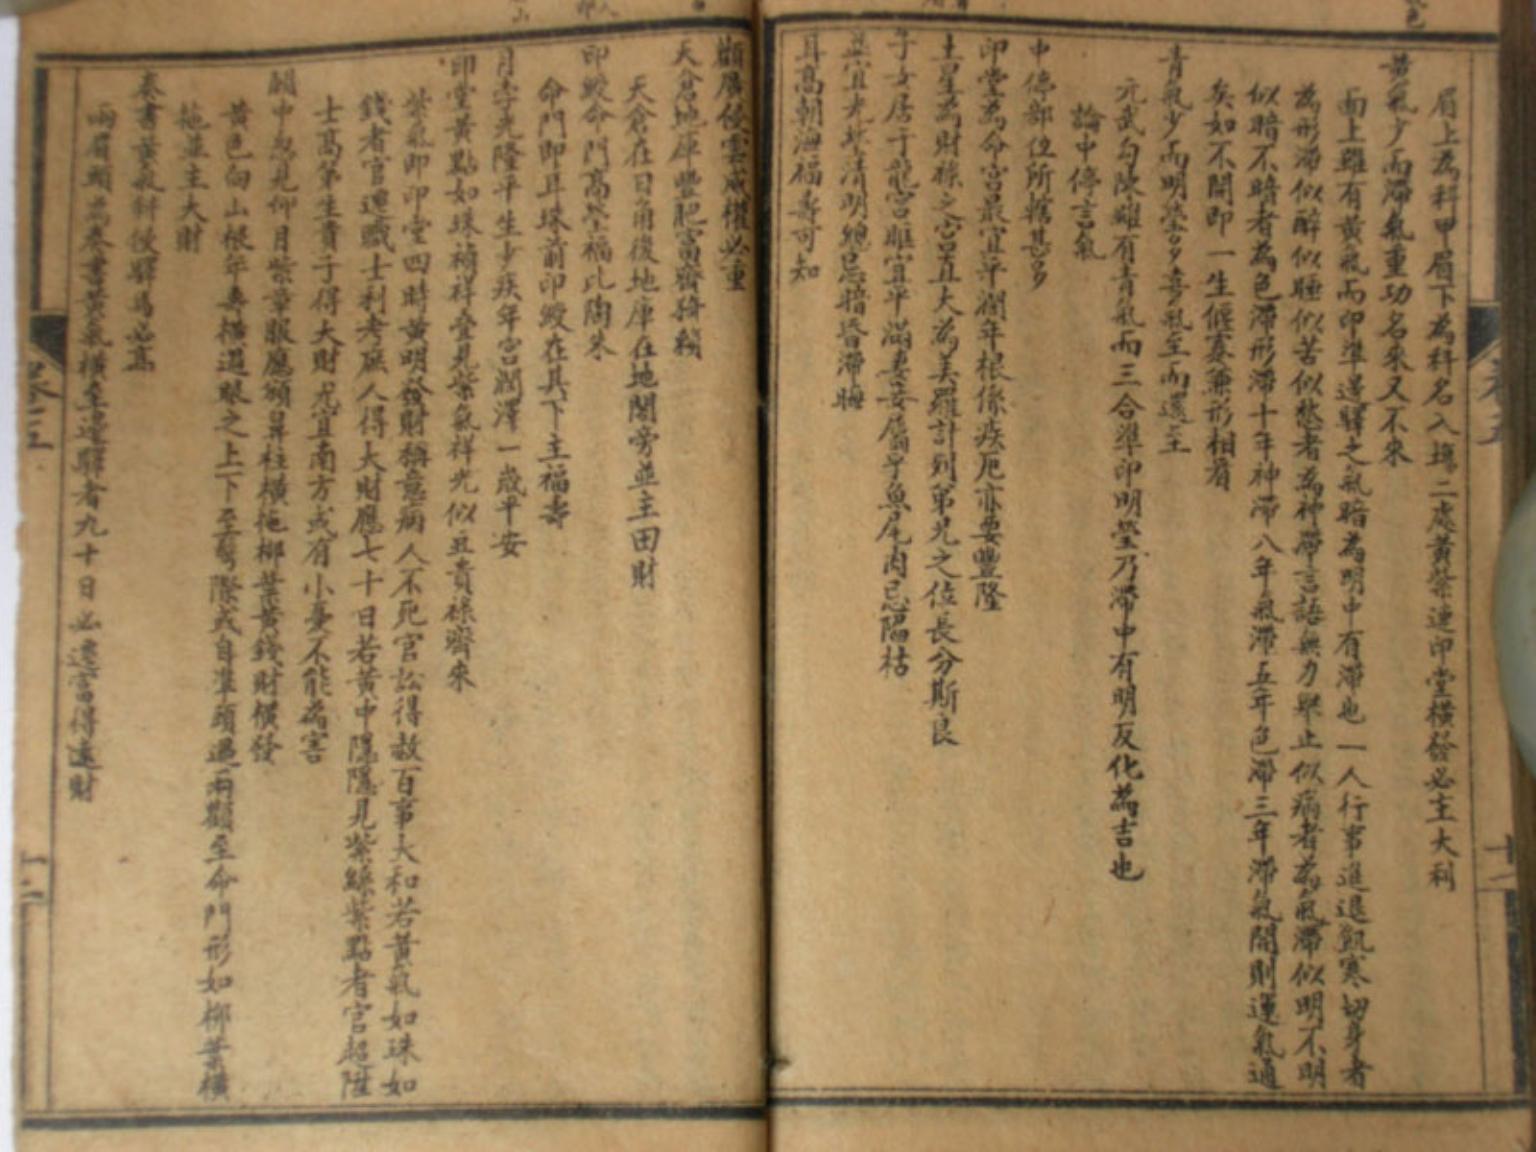 眉上為科甲眉下為科名入塲二處黃紫連印堂橫發必主大利
黃氣少而滯氣重功名來又不來
面上雖有黃氣而印準邊驛之氣暗為明中有滯也一人行事進退飢寒切身者
為形滯似醉似睡似苦似愁者為神滯言語無力舉止似病者為氣滯似明不明
似暗不暗者為色滯形滯十年神滯八年氣滯五年色滯三年滯氣開則運氣通
矣如不開即一生偃蹇兼形相看
青氣少而明瑩多喜氣至而還主
元武勾陳雖有青氣而三合準印明瑩乃滯中有明反化為吉也
論中停言氣
中停部位所轄甚多
印堂為命宮最宜平潤年根係疾厄亦要豐隆
土星為財祿之宮直大為美羅計列弟兄之位長分斯良
子女居于龍宮睚宜平滿妻妾屬乎魚尾肉忌陷枯
並宜光紫清明總忌措昏滯晦
耳高朝海福壽可知
顴居侵雲威權必重
天倉地庫豐肥富齊猗頓
天倉在日角後地庫在地閣旁並主田財
印綬命門高瑩福比陶朱
命門即耳珠前印綬在其下主福壽
月孛光隆平生少疾年宮潤澤一歲平安
印堂黃點如珠禎祥疊見紫氣祥光似豆貴祿齊來
紫氣即印堂四時黃明發財稱意病人不死官訟得赦百事大和若黃氣如珠如
錢者官遷職士利考庶人得大財應七十日若黃中隱隱見紫線紫點者官超陞
士高第生貴子得大財尤宜南方或有小妻不能為害
顴中忽見仰月紫章服應頒昇柱橫拖柳葉黃錢財橫發
黃色向山根年壽橫過眼之上下至鬢際或自準頭過兩顴至命門形如柳葉橫
拖並主大財
奏書黃氣斜侵驛馬必高
兩眉頭為奏書黃氣橫至邊驛者九十日必遷官得遠財
卷五
十二